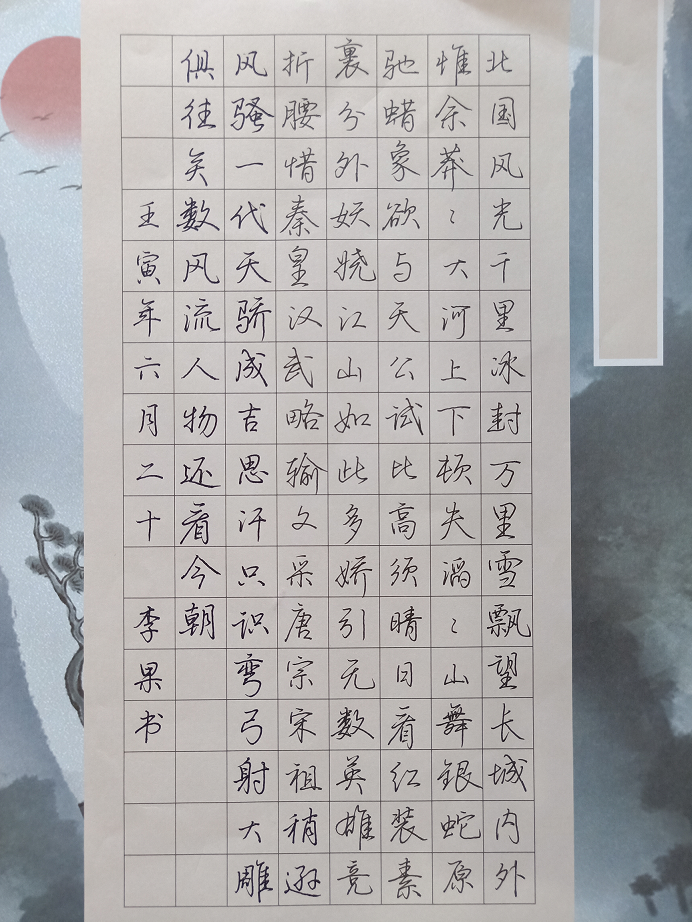 北国风光千里冰封万里雪飘望长城内外
惟余莽〻大河上下顿失滔〻山舞银蛇原
驰蜡象欲与天公试比高须晴日看红装素
裹分外妖娆江山如此多娇引无数英雄竞
折腰惜秦皇汉武略输文采唐宗宋祖稍逊
风骚一代天骄成吉思汗只识弯弓射大雕
俱往矣数风流人物还看今朝
壬寅年六月二十 李果书